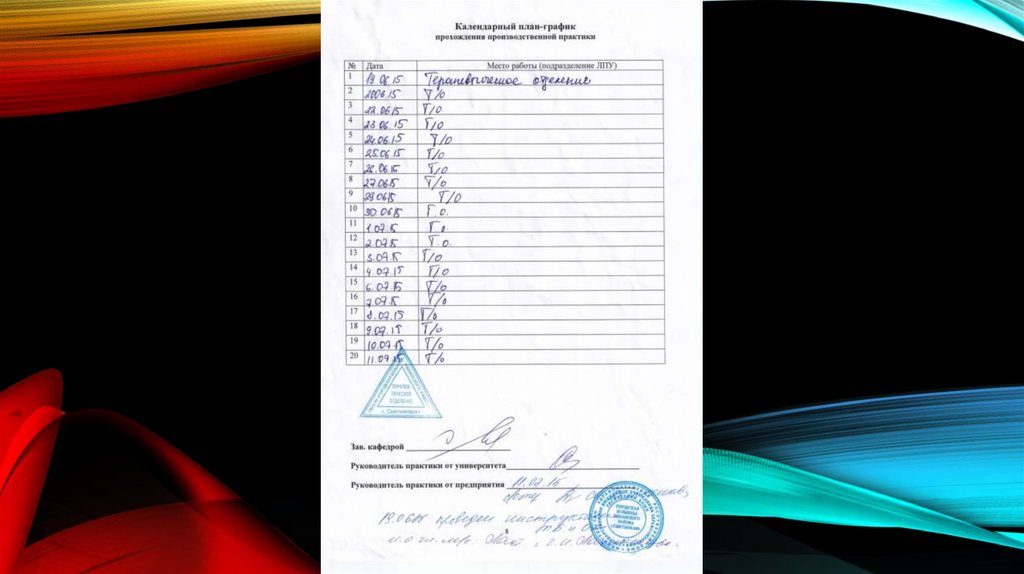 Календарный план-график
прохождения производственной практики
№ Дата Место работы (подразделение ЛПУ)
1 19.06.15 Терапевтическое отделение
2 20.06.15 Т/о
3 22.06.15 Т/о
4 23.06.15 Т/о
5 24.06.15 Т/о
6 25.06.15 Т/о
7 26.06.15 Т/о
8 27.06.15 Т/о
9 29.06.15 Т/о
10 30.06.15 Т.о.
11 1.07.15 Т.о.
12 2.07.15 Т.о.
13 3.07.15 Т/о
14 4.07.15 Т/о
15 6.07.15 Т/о
16 7.07.15 Т/о
17 8.07.15 Т/о
18 9.07.15 Т/о
19 10.07.15 Т/о
20 11.07.15 Т/о
ТЕРАПЕВ
ТИЧЕСКОЕ
ОТДЕЛЕНИЕ
г. Сыктывкар
Зав. кафедрой
Руководитель практики от университета
Руководитель практики от предприятия 11.07.15
ГОРОДСКАЯ
БОЛЬНИЦА
19.06.15 проведен инструктаж